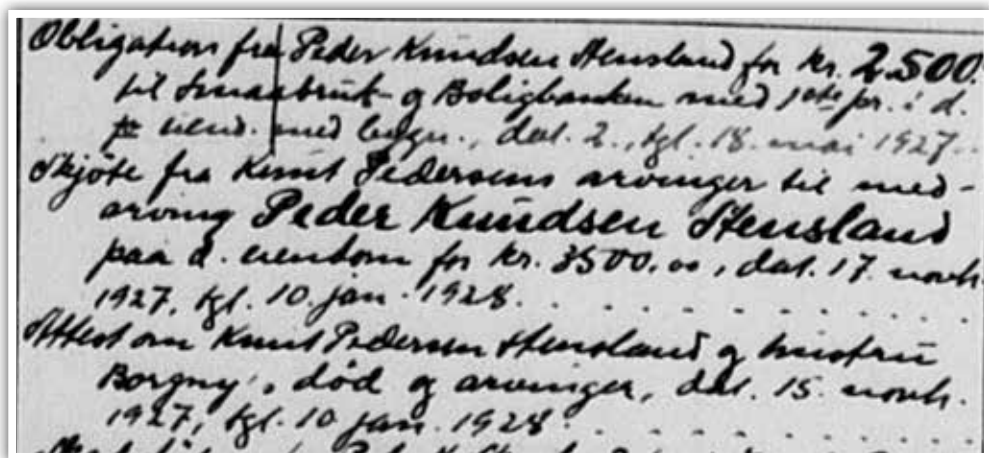 Obligation fra Peder Knudsen Stensland for kr. 2.500.
til Smaabruk- og Boligbanken med 1ste pr. i d.
eiend. med bygn., dat. 2., tgl. 18. mai 1927..
Skjøte fra Knut Pedersens arvinger til med-
arving Peder Knudsen Stensland
paa d. eiendom for kr. 3500.00, dat. 17. novb.
1927, tgl. 10. jan. 1928. . . . . . . . . . .
Attest om Knut Pedersen Stensland og hustru
Borgny's død og arvinger, dat. 15. novb.
1927, tgl. 10. jan. 1928. . . . . . . . . . .